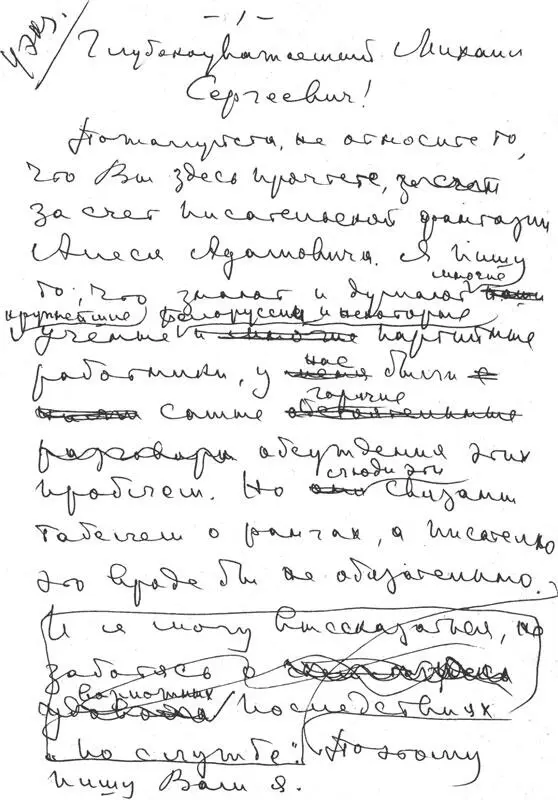 - 1 -
4 экз.
Глубокоуважаемый Михаил
Сергеевич!
Пожалуйста, не относите то,
что Вы здесь прочтете, за счет
за счет писательской фантазии
Алеся Адамовича. Я пишу
многие
то, что знают и думают наши
крупнейшие белорусские и некоторые
ученые и многие партийные
нас
работники, у меня были с
горячие
самые обстоятельные
разговоры обсуждения этих
люди эти
проблем. Но они связаны
табелем о рангах, а писателю
это вроде бы не обязательно.
И я могу высказаться, не
заботясь о
возможных
последствиях
"по службе". Поэтому
пишу Вам я.